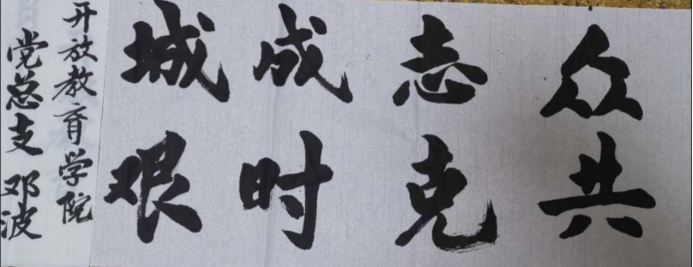 众志成城
共克时艰
开放教育学院
党总支 邓波